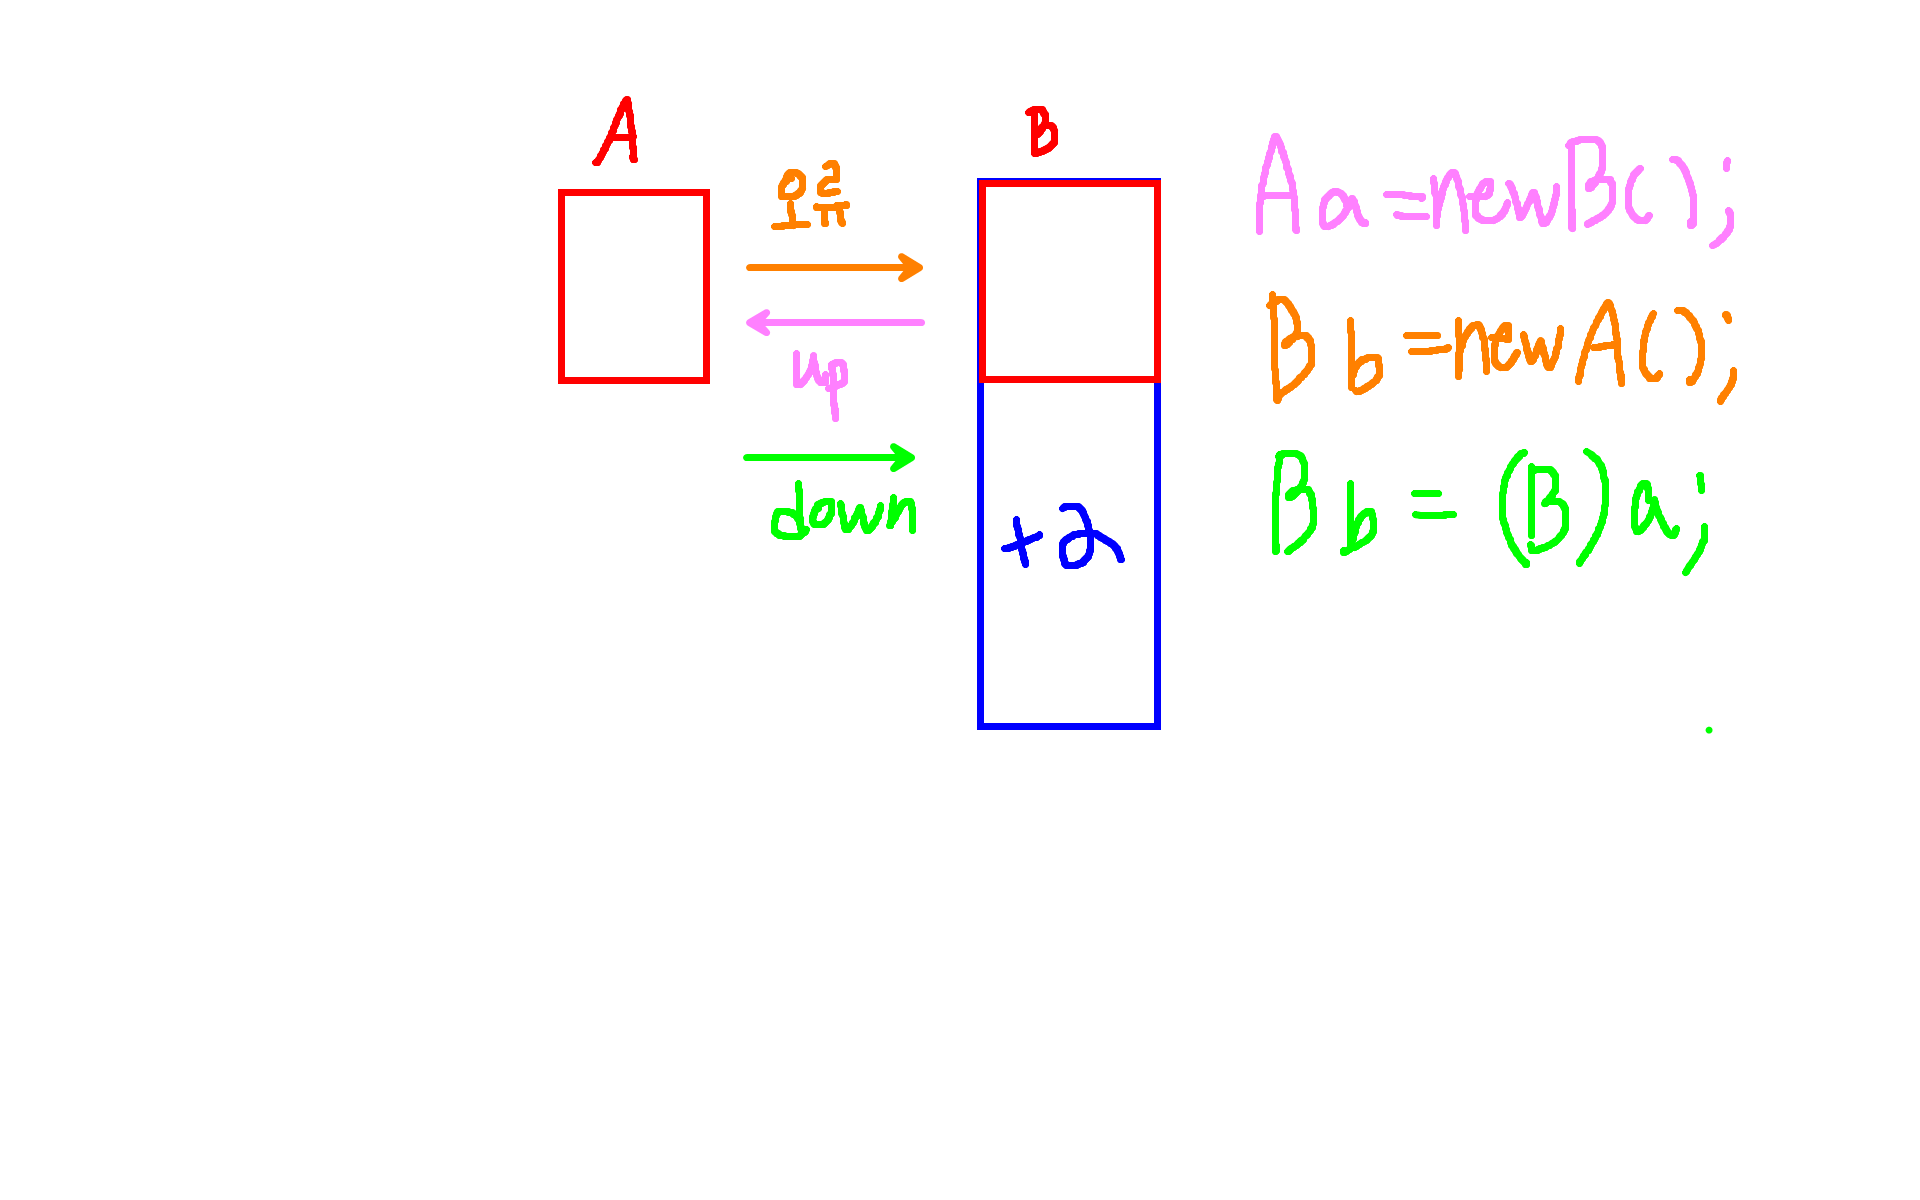 A
B
오류
up
down
+2
A a = new B();
B b = new A();
B b = (B) a;